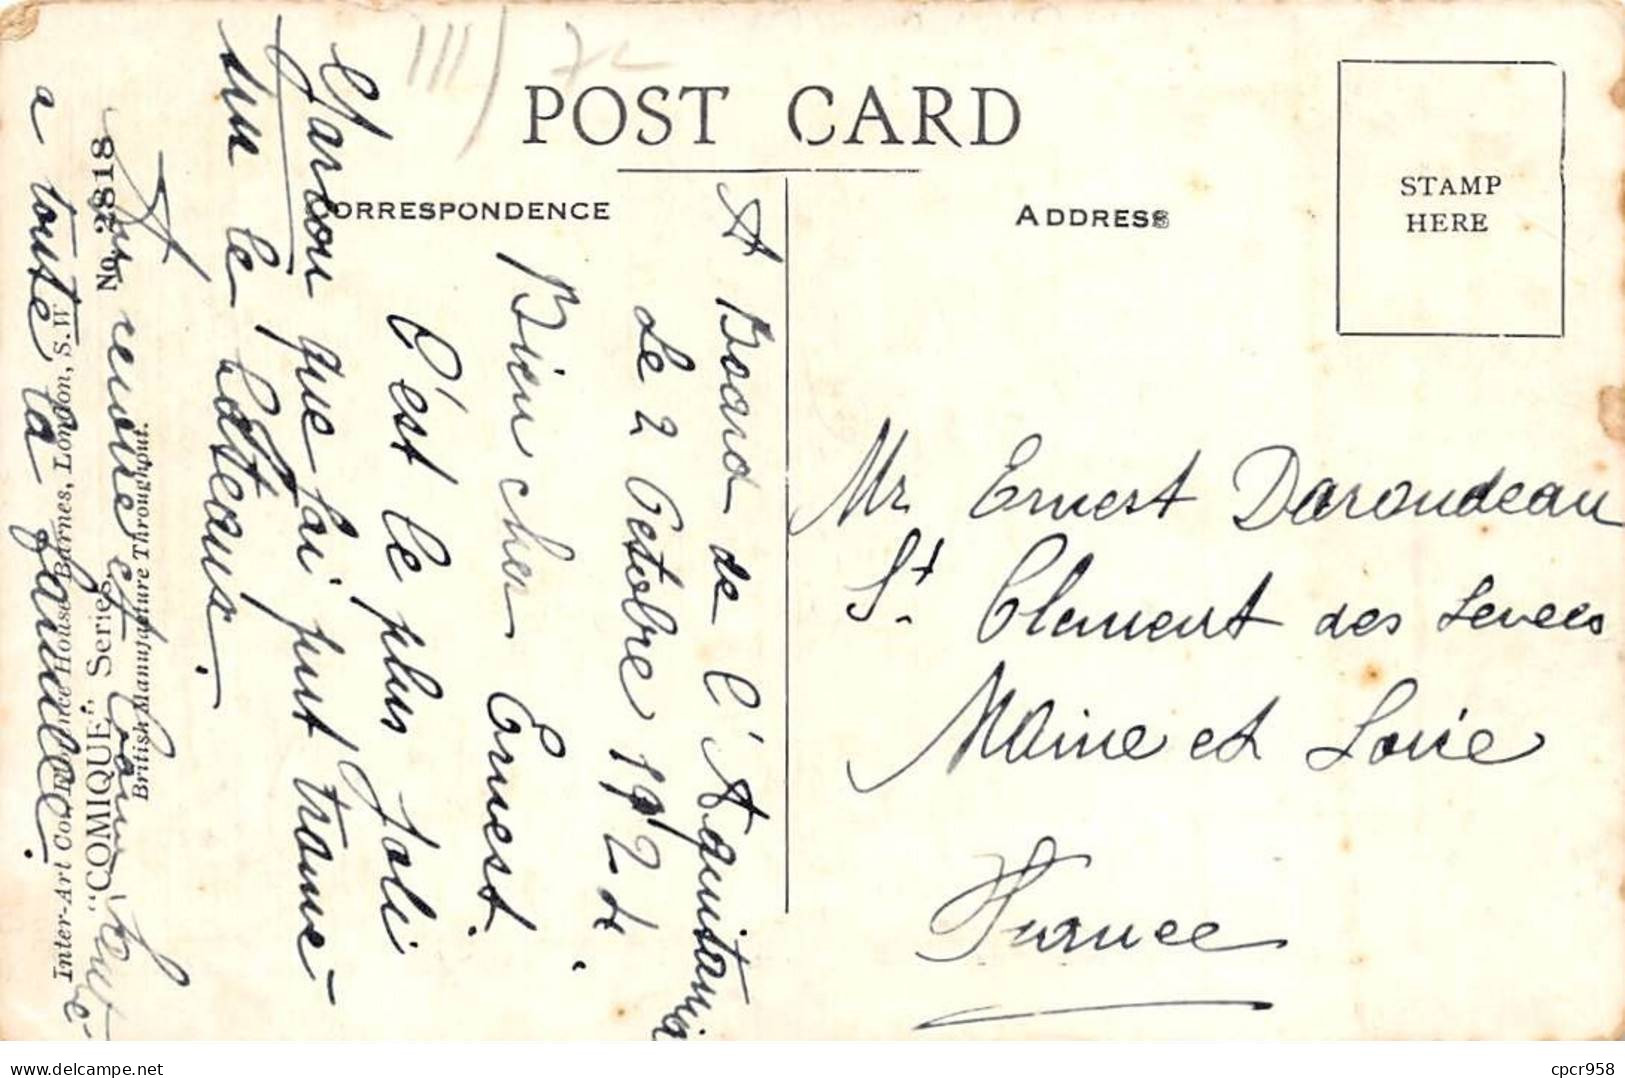 POST CARD
CORRESPONDENCE
ADDRESS
STAMP
HERE
A Board de l'Aquitania
Le 2 Octobre 1924
Bien cher Ernest.
C'est le plus Joli
Garçon que j'ai put trouvé
sur le Bateau.
Au revoir et Bonne
a toute la famille.
Mr Ernest Daroudeau
St. Clement des Levees
Maine et Loire
France
No. 2818
"COMIQUE" Series.
Inter-Art Co., House, Barnes, London, S.W.
British Manufacture Throughout.
cpcr958